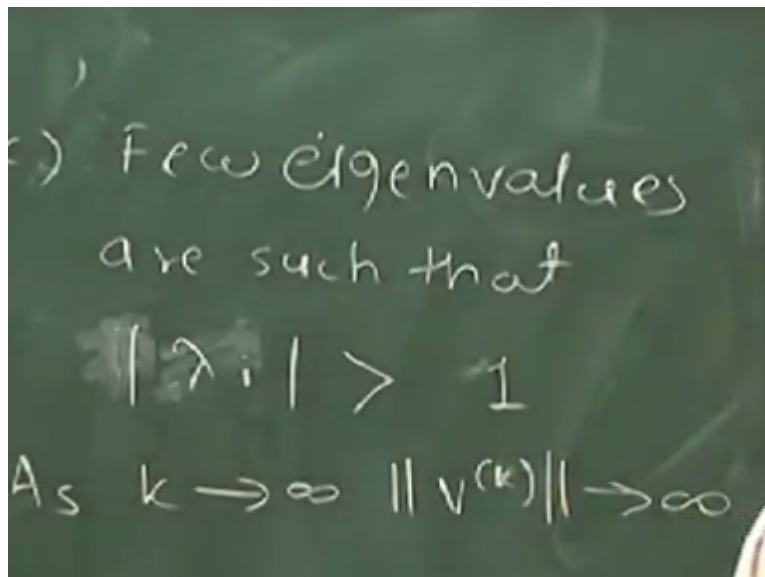 c) Few eigenvalues
are such that
|λi| > 1
As k → ∞ ||v^(k)|| → ∞